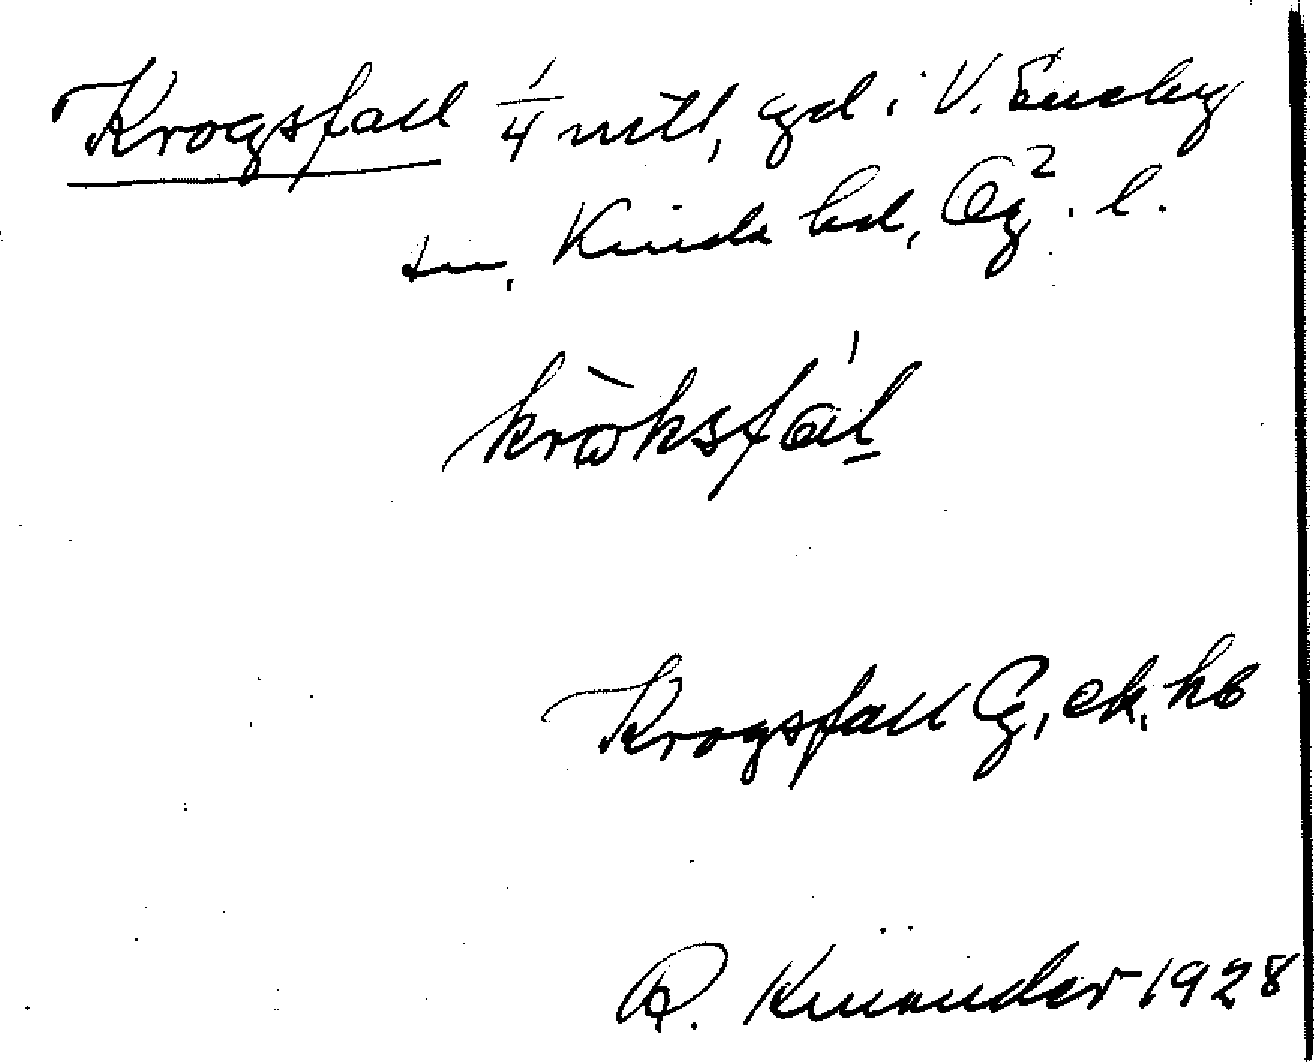 Krogsfall 1/4 mtl, gd i V. Eneby
sn, Kinda hd, Ög². l.
kròksfál
Krogsfall G, ek, kb
R. Kinander 1928